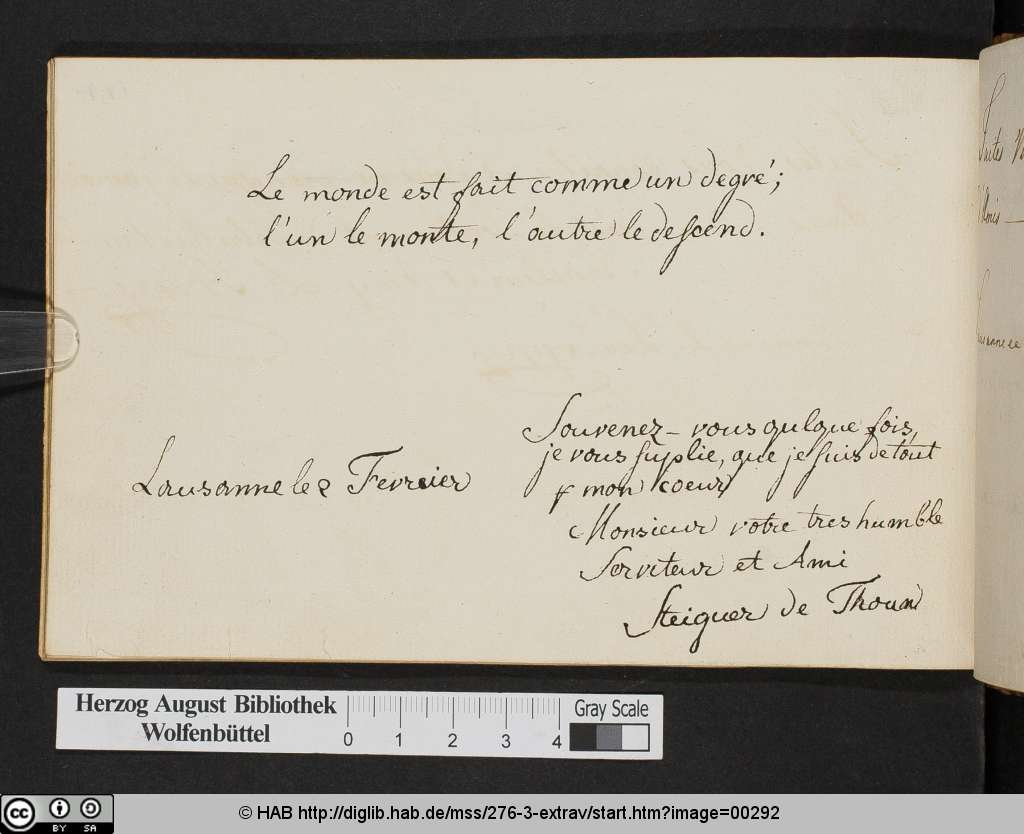 Le monde est fait comme un degré;
l'un le monte, l'autre le descend.
Souvenez-vous qulque fois,
je vous suplie, que je suis de tout
mon coeur
Lausanne le 2 Fevrier
Monsieur votre tres humble
Serviteur et Ami
Steiguer de Thoun
Herzog August Bibliothek
Wolfenbüttel
0 1 2 3 4
Gray Scale
cc BY SA
© HAB http://diglib.hab.de/mss/276-3-extrav/start.htm?image=00292